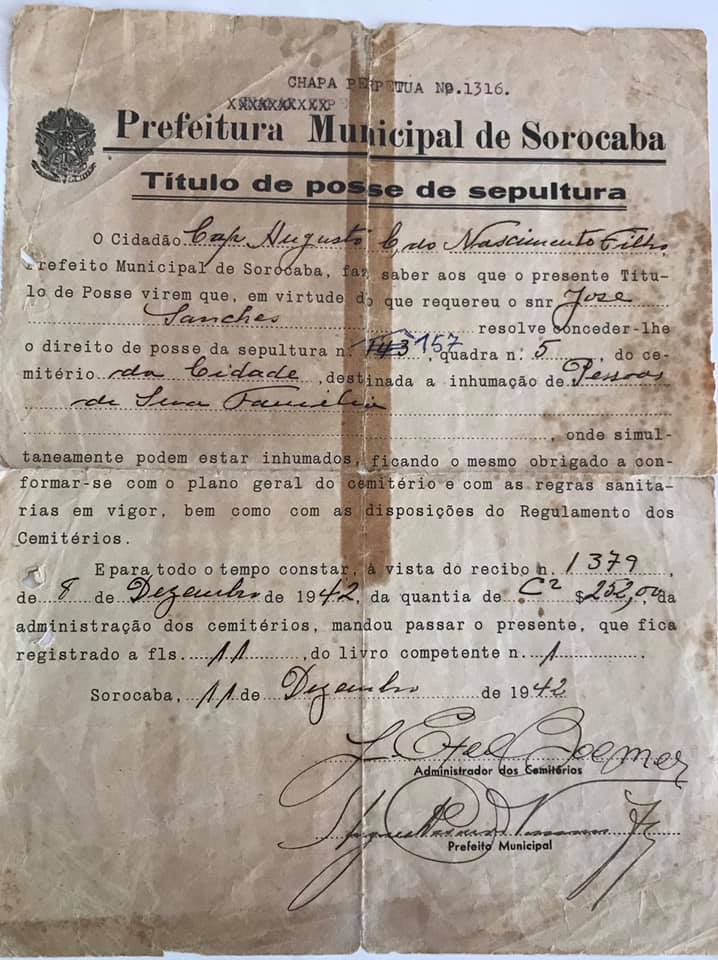 CHAPA PERPETUA Nº.1316.
XXXXXXXXXXPE
Prefeitura Municipal de Sorocaba
Título de posse de sepultura
O Cidadão Cap. Augusto C. do Nascimento Filho,
Prefeito Municipal de Sorocaba, faz saber aos que o presente Títu-
lo de Posse virem que, em virtude do que requereu o snr Jose
Sanches resolve conceder-lhe
o direito de posse da sepultura n. 143 157, quadra n. 5, do ce-
mitério da Cidade, destinada a inhumação de Pessoas
de Sua Familia
, onde simul-
taneamente podem estar inhumados, ficando o mesmo obrigado a con-
formar-se com o plano geral do cemitério e com as regras sanita-
rias em vigor, bem como com as disposições do Regulamento dos
Cemitérios.
E para todo o tempo constar, à vista do recibo n. 1379,
de 8 de Dezembro de 1942, da quantia de Cr $252,00, da
administração dos cemitérios, mandou passar o presente, que fica
registrado a fls. 11, do livro competente n. 1.
Sorocaba, 11 de Dezembro de 1942
Administrador dos Cemitérios
Prefeito Municipal